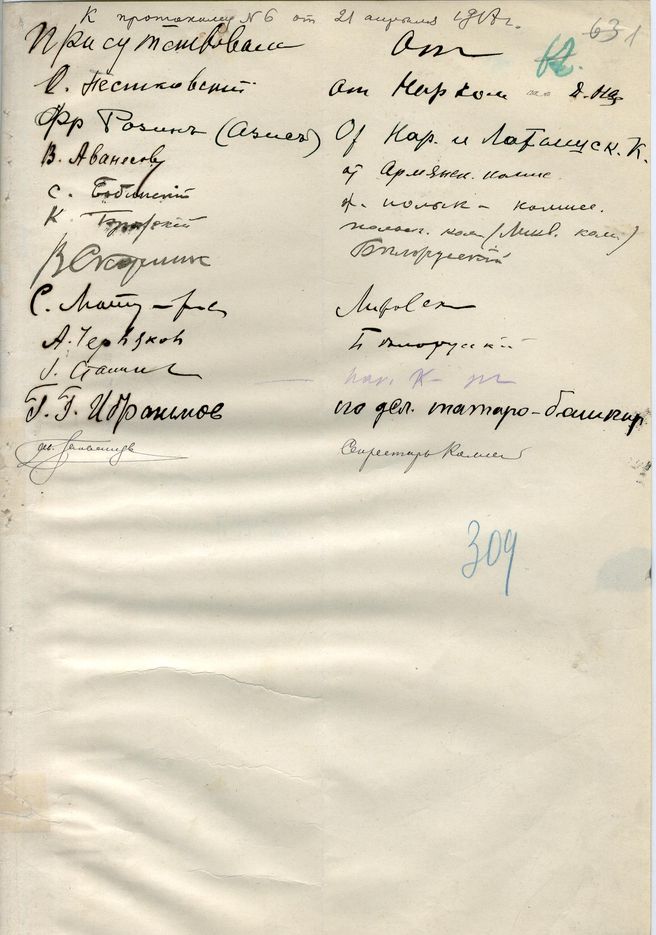 К протоколу N 6 от 21 апреля 1918 г.
631
Присутствовали от
С. Пестковский от Нарком по д. нац
Фр Розинь (Азись) От Нар. и Латышск. К.
В. Аванесов от Армянск. комис.
С. Бобинский от польск- комисс.
К. польск. ком (Ликв. ком)
В Скорынин Белорусский
С. Литовск
А. Червяков Белорусский
І. Сталин нац. К-
Г. Г. Ибрагимов по дел. татаро-башкир.
Секретарь Колле
309